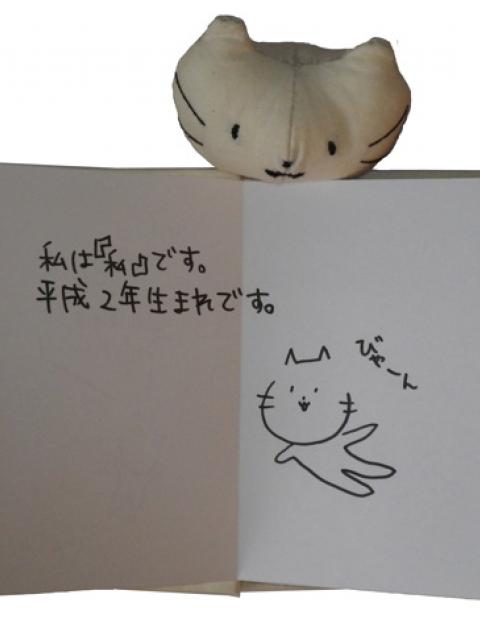 私は『私』です。
平成2年生まれです。
びゃーん